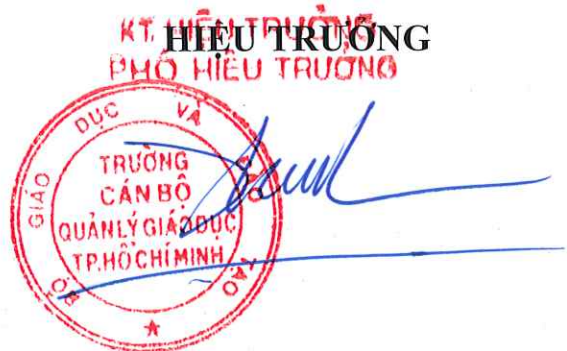 KT. HIỆU TRƯỞNG
HIỆU TRƯỞNG
PHÓ HIỆU TRƯỞNG
BỘ GIÁO DỤC VÀ ĐÀO TẠO
TRƯỜNG
CÁN BỘ
QUẢN LÝ GIÁO DỤC
TP.HỒ CHÍ MINH